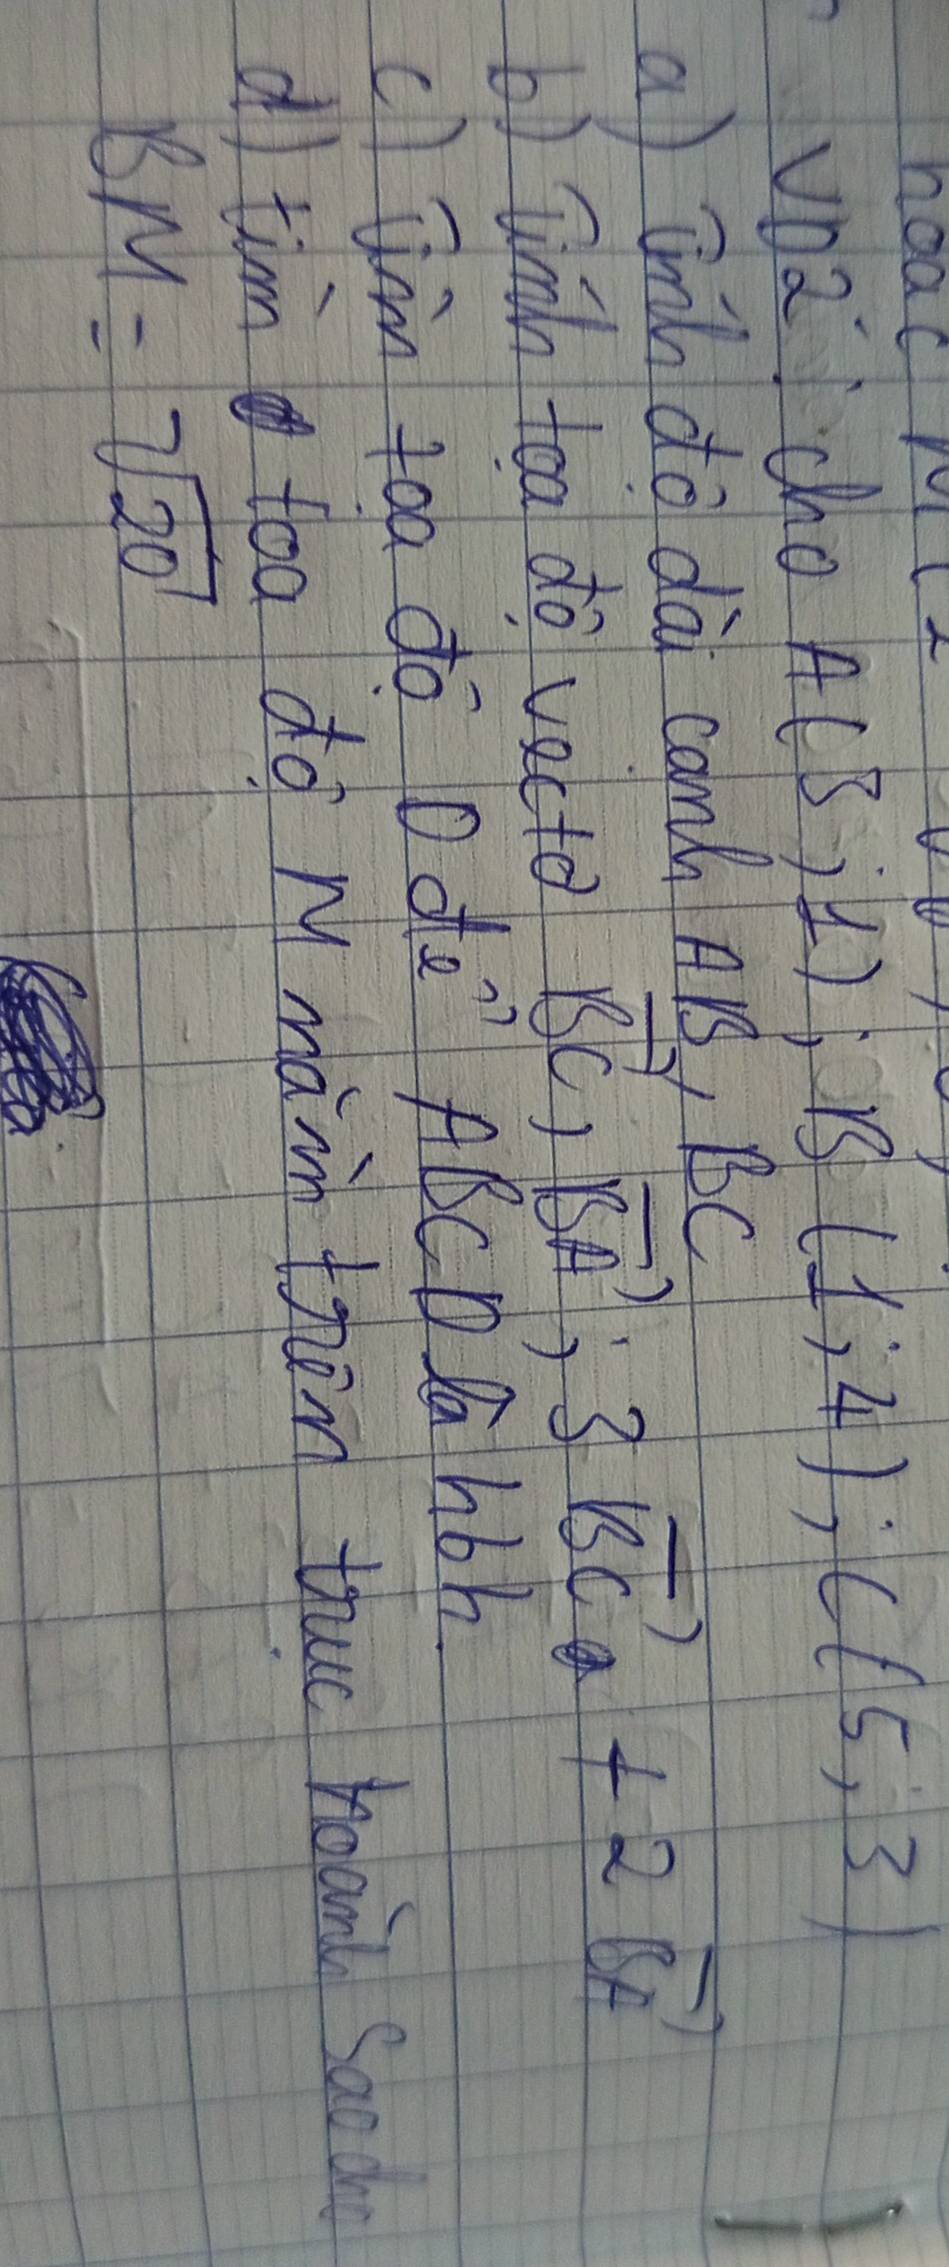 hoặc M(2
VD2: cho A(3;1); B(1;4); C(5;3)
a) Tính độ dài cạnh AB, BC
b) Tính tọa độ vectơ BC→, BA→; 3BC→ + 2BA→
c) Tìm tọa độ D để ABCD là hbh.
d) tìm tọa độ M nằm trên trục hoành sao cho
BM = √20